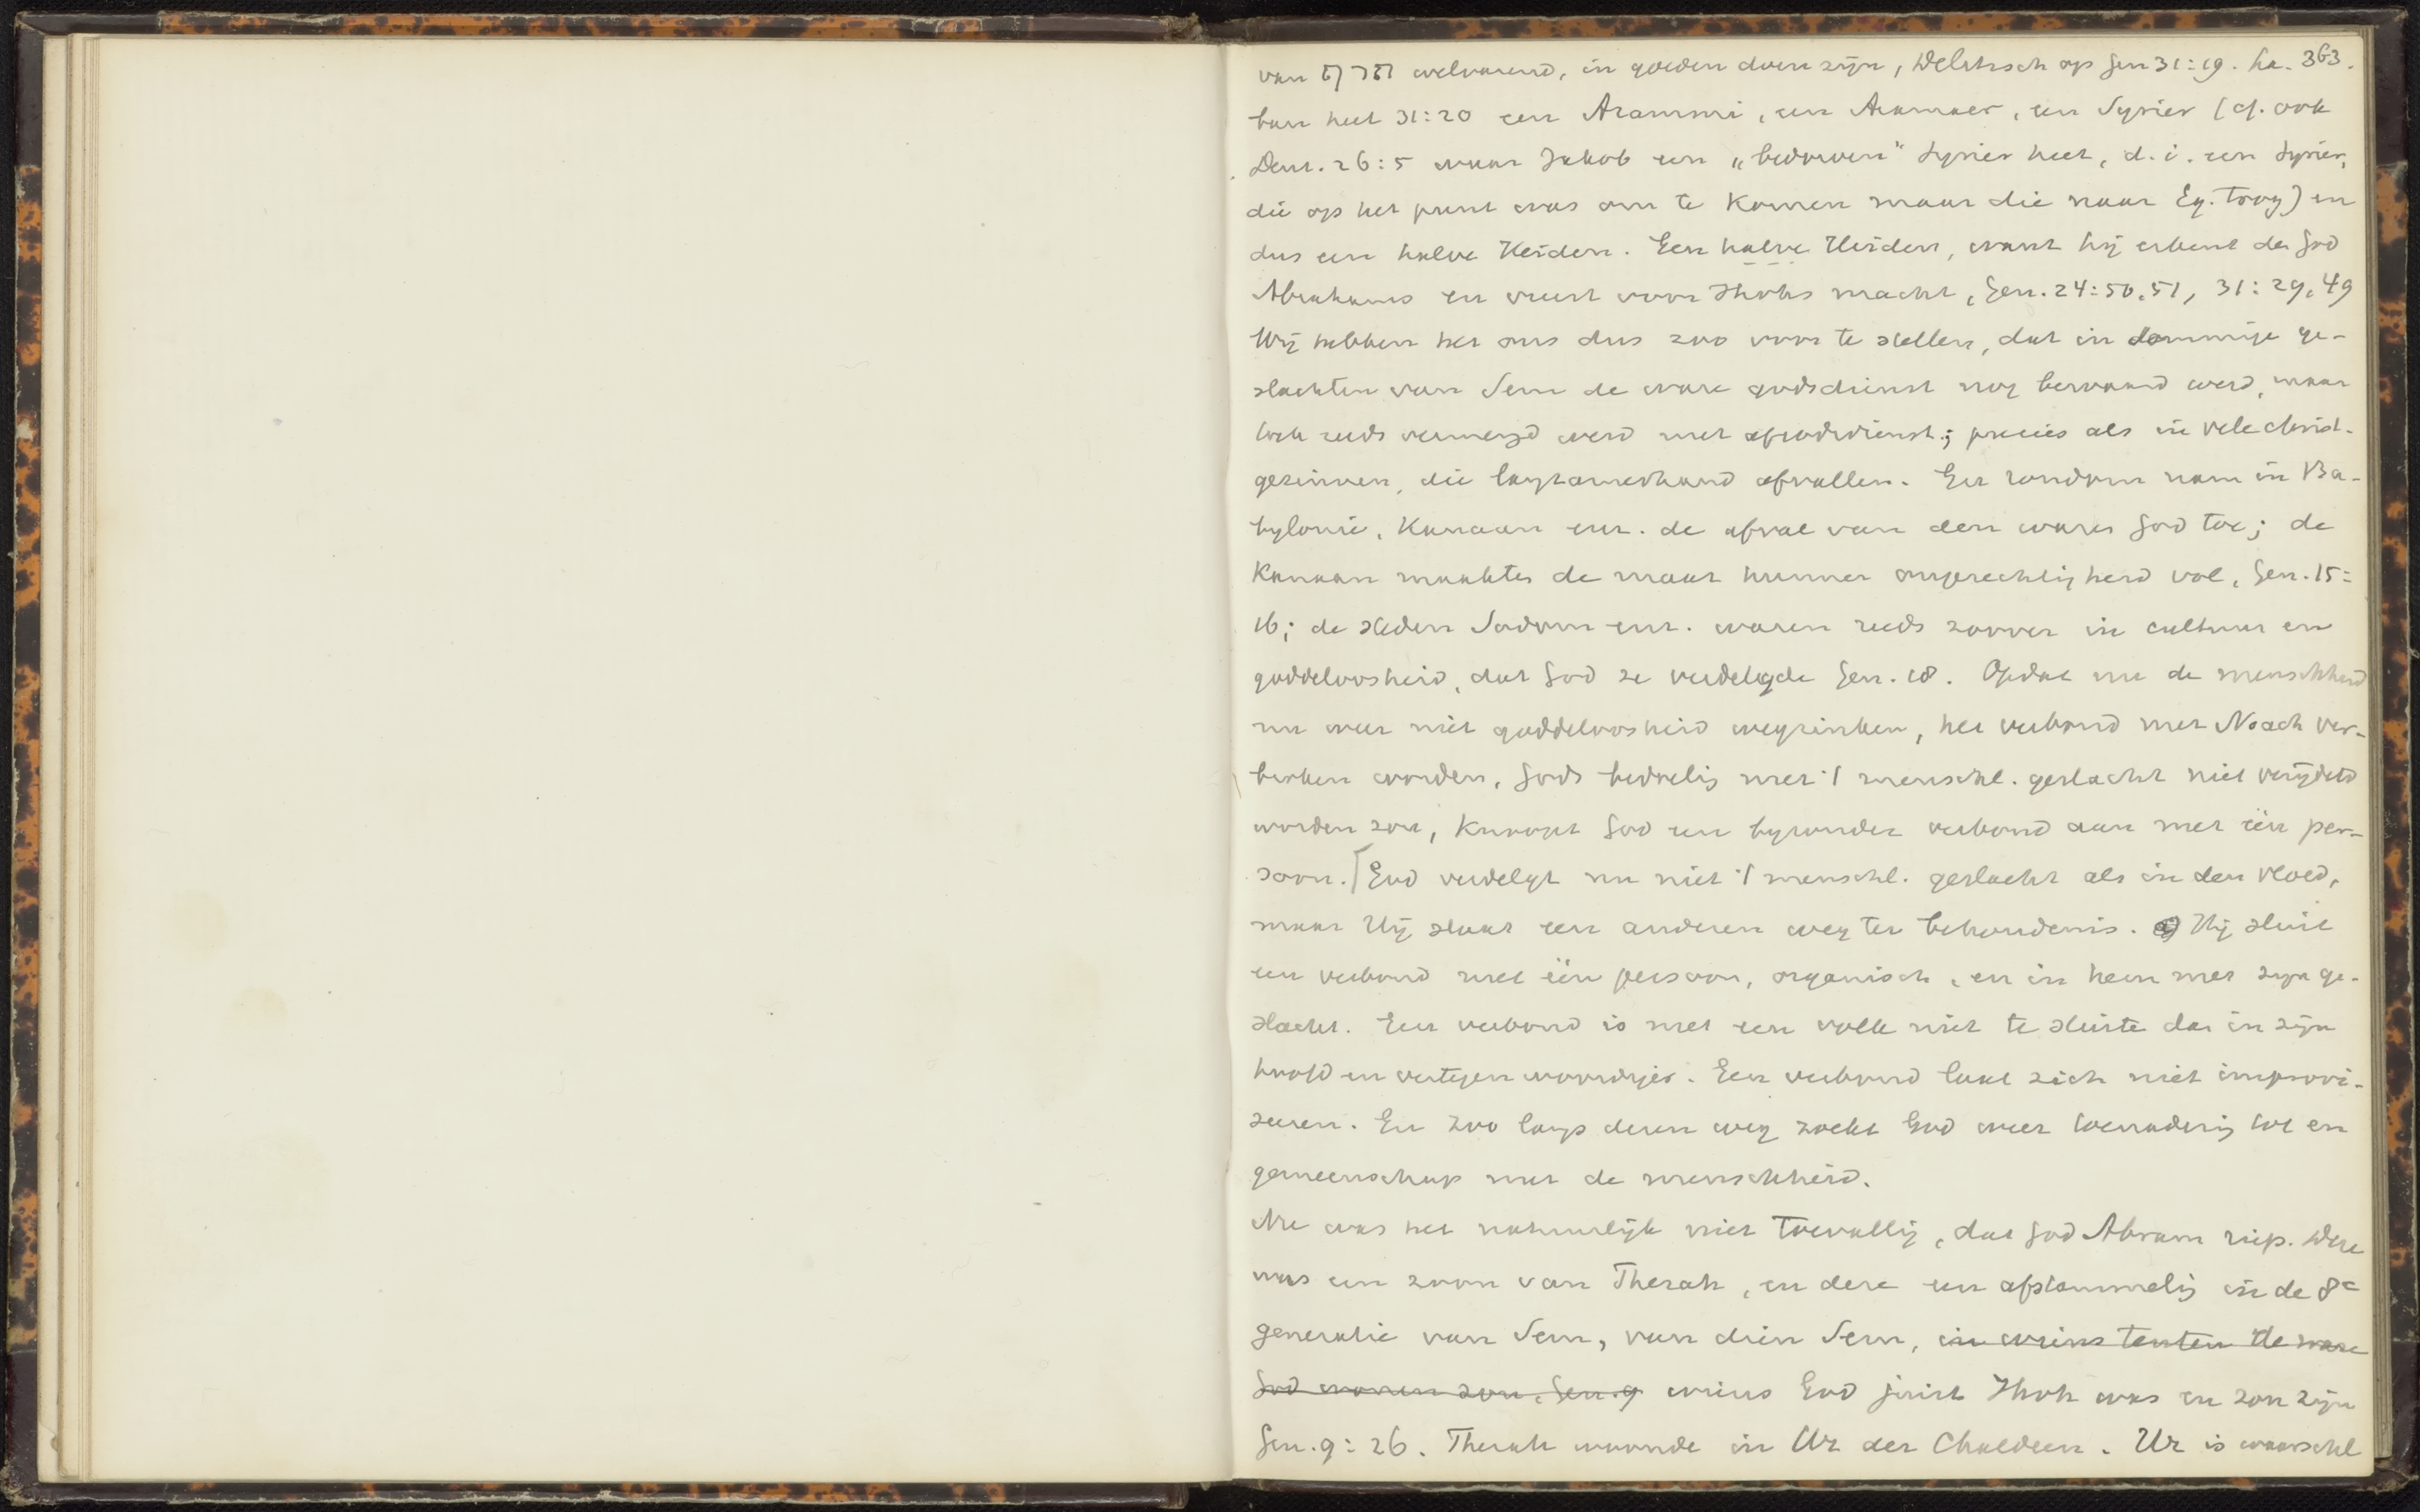 van תרף welvarend, in goeden doen zijn, Delitzsch op Gen 31:19. La- 363.
ban heet 31:20 een Arammi, een Arameer, een Syrier (cf. ook
Deut. 26:5 waar Jakob een „bedorven" Syrier heet, d.i. een Syrier,
die op het punt was om te komen maar die naar Eg. toog) en
dus een halve Heiden. Een halve Heiden, want hij erkent den God
Abrahams en vreest voor Jhvhs macht, Gen. 24:50,51, 31:29,49
Wij hebben het ons dus zoo voor te stellen, dat in sommige ge-
slachten van Sem de ware godsdienst nog bewaard werd, maar
toch reeds vermengd werd met afgodsdienst; precies als in vele christ.
gezinnen, die langzamerhand afvallen. En rondom nam in Ba-
bylonie, Kanaan enz. de afval van den waren God toe; de
Kanaan maakten de maat hunner ongerechtigheid vol, Gen. 15:
16; de steden Sodom enz. waren reeds zoover in cultuur en
goddeloosheid, dat God ze verdelgde Gen. 18. Opdat nu de menschheid
nu weer niet goddeloosheid wegzinken, het verbond met Noach ver-
broken worden, Gods bedoelig met 't menschel. geslacht niet verijdeld
worden zou, Knoopt God een byzonder verbond aan met één per-
soon. [God verdelgt nu niet 't menschel. geslacht als in den vloed,
maar Hij slaat een anderen weg ter behoudenis. Hij sluit
een verbond met één persoon, organisch, en in hem met zijn ge-
slacht. Een verbond is met een volk niet te sluite dan in zijn
hoofd en vertegenwoordiger. Een verbond laat zich niet improvi-
seeren. En zoo langs dezen weg zoekt God weer toenaderig tot en
gemeenschap met de menschheid.
Nu was het natuurlijk niet toevallig, dat God Abram riep. Deze
was een zoon van Therah, en deze een afstammelig in de 8e
generatie van Sem, van dien Sem, in wiens tenten de ware
God wonen zou, Gen. 9 wiens God juist Jhvh was en zou zijn
Gen. 9:26. Therah woonde in Ur der Chaldeen. Ur is waarschl